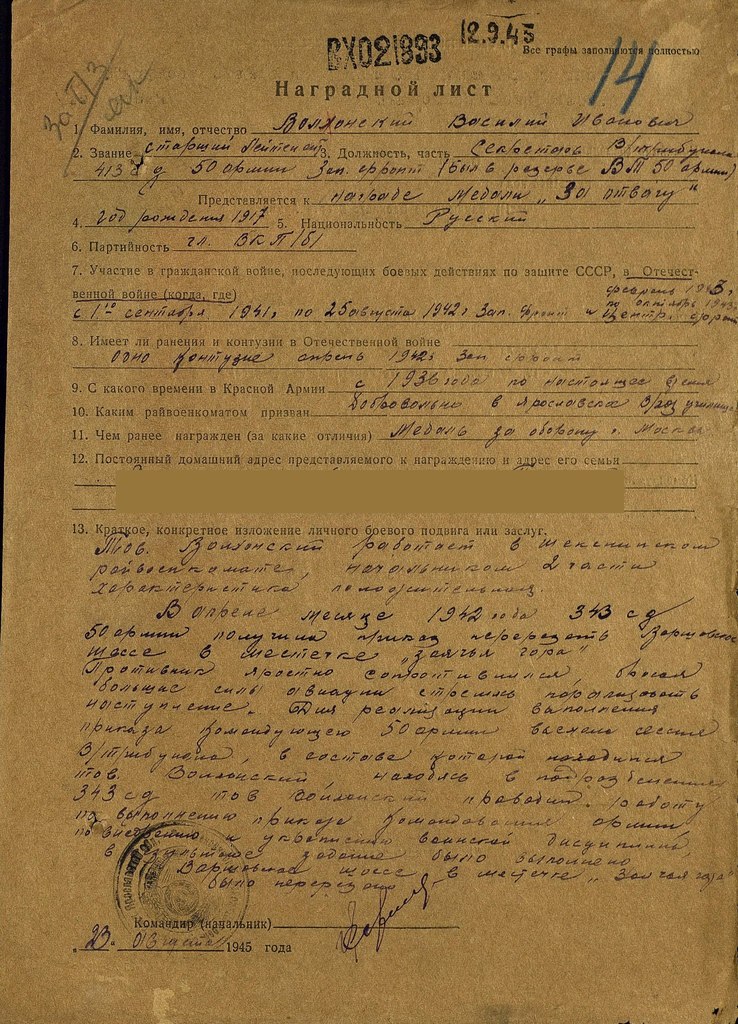 ВХ021893 12.9.45
Все графы заполняются полностью
14
Наградной лист
1. Фамилия, имя, отчество Волхонский Василий Иванович
2. Звание старший лейтенант 3. Должность, часть Секретарь В/трибунала
413 сд 50 армии Зап. фронт (был в резерве ВТ 50 армии)
Представляется к награде Медали „За отвагу"
4. год рождения 1917 5. Национальность Русский
6. Партийность чл. ВКП(б)
7. Участие в гражданской войне, последующих боевых действиях по защите СССР, в Отечест-
венной войне (когда, где) февраль 1943
с 1го сентября 1941г по 25 августа 1942г Зап. Фронт и Центр. фронт
по октябрь 1943
8. Имеет ли ранения и контузии в Отечественной войне
одно контузие апрель 1942г Зап фронт
9. С какого времени в Красной Армии с 1936 года по настоящее время
10. Каким райвоенкоматом призван Добровольно в Ярославское
11. Чем ранее награжден (за какие отличия) Медаль за оборону г. Москвы
12. Постоянный домашний адрес представляемого к награждению и адрес его семьи
13. Краткое, конкретное изложение личного боевого подвига или заслуг.
Тов. Волхонский работает в Шекснинском
райвоенкомате, начальником 2 части
характеристика положительной.
В апреле месяце 1942 года 343 сд
50 армии получила приказ перерезать Варшавское
шоссе в местечке „Заячья гора"
Противник яростно сопротивлялся, бросая
большие силы авиации стремясь парализовать
наступление. Для реализации выполнения
приказа командующего 50 армии выехала сессия
В/трибунала, в составе которой находился
тов. Волхонский находясь в подразделениях
343 сд тов Волхонский проводил работу
по выполнению приказа командования армии
и укреплению воинской дисциплины
в результате задание было выполнено
Варшавское шоссе в местечке „Заячья гора"
было перерезано
Командир (начальник)
„23" августа 1945 года